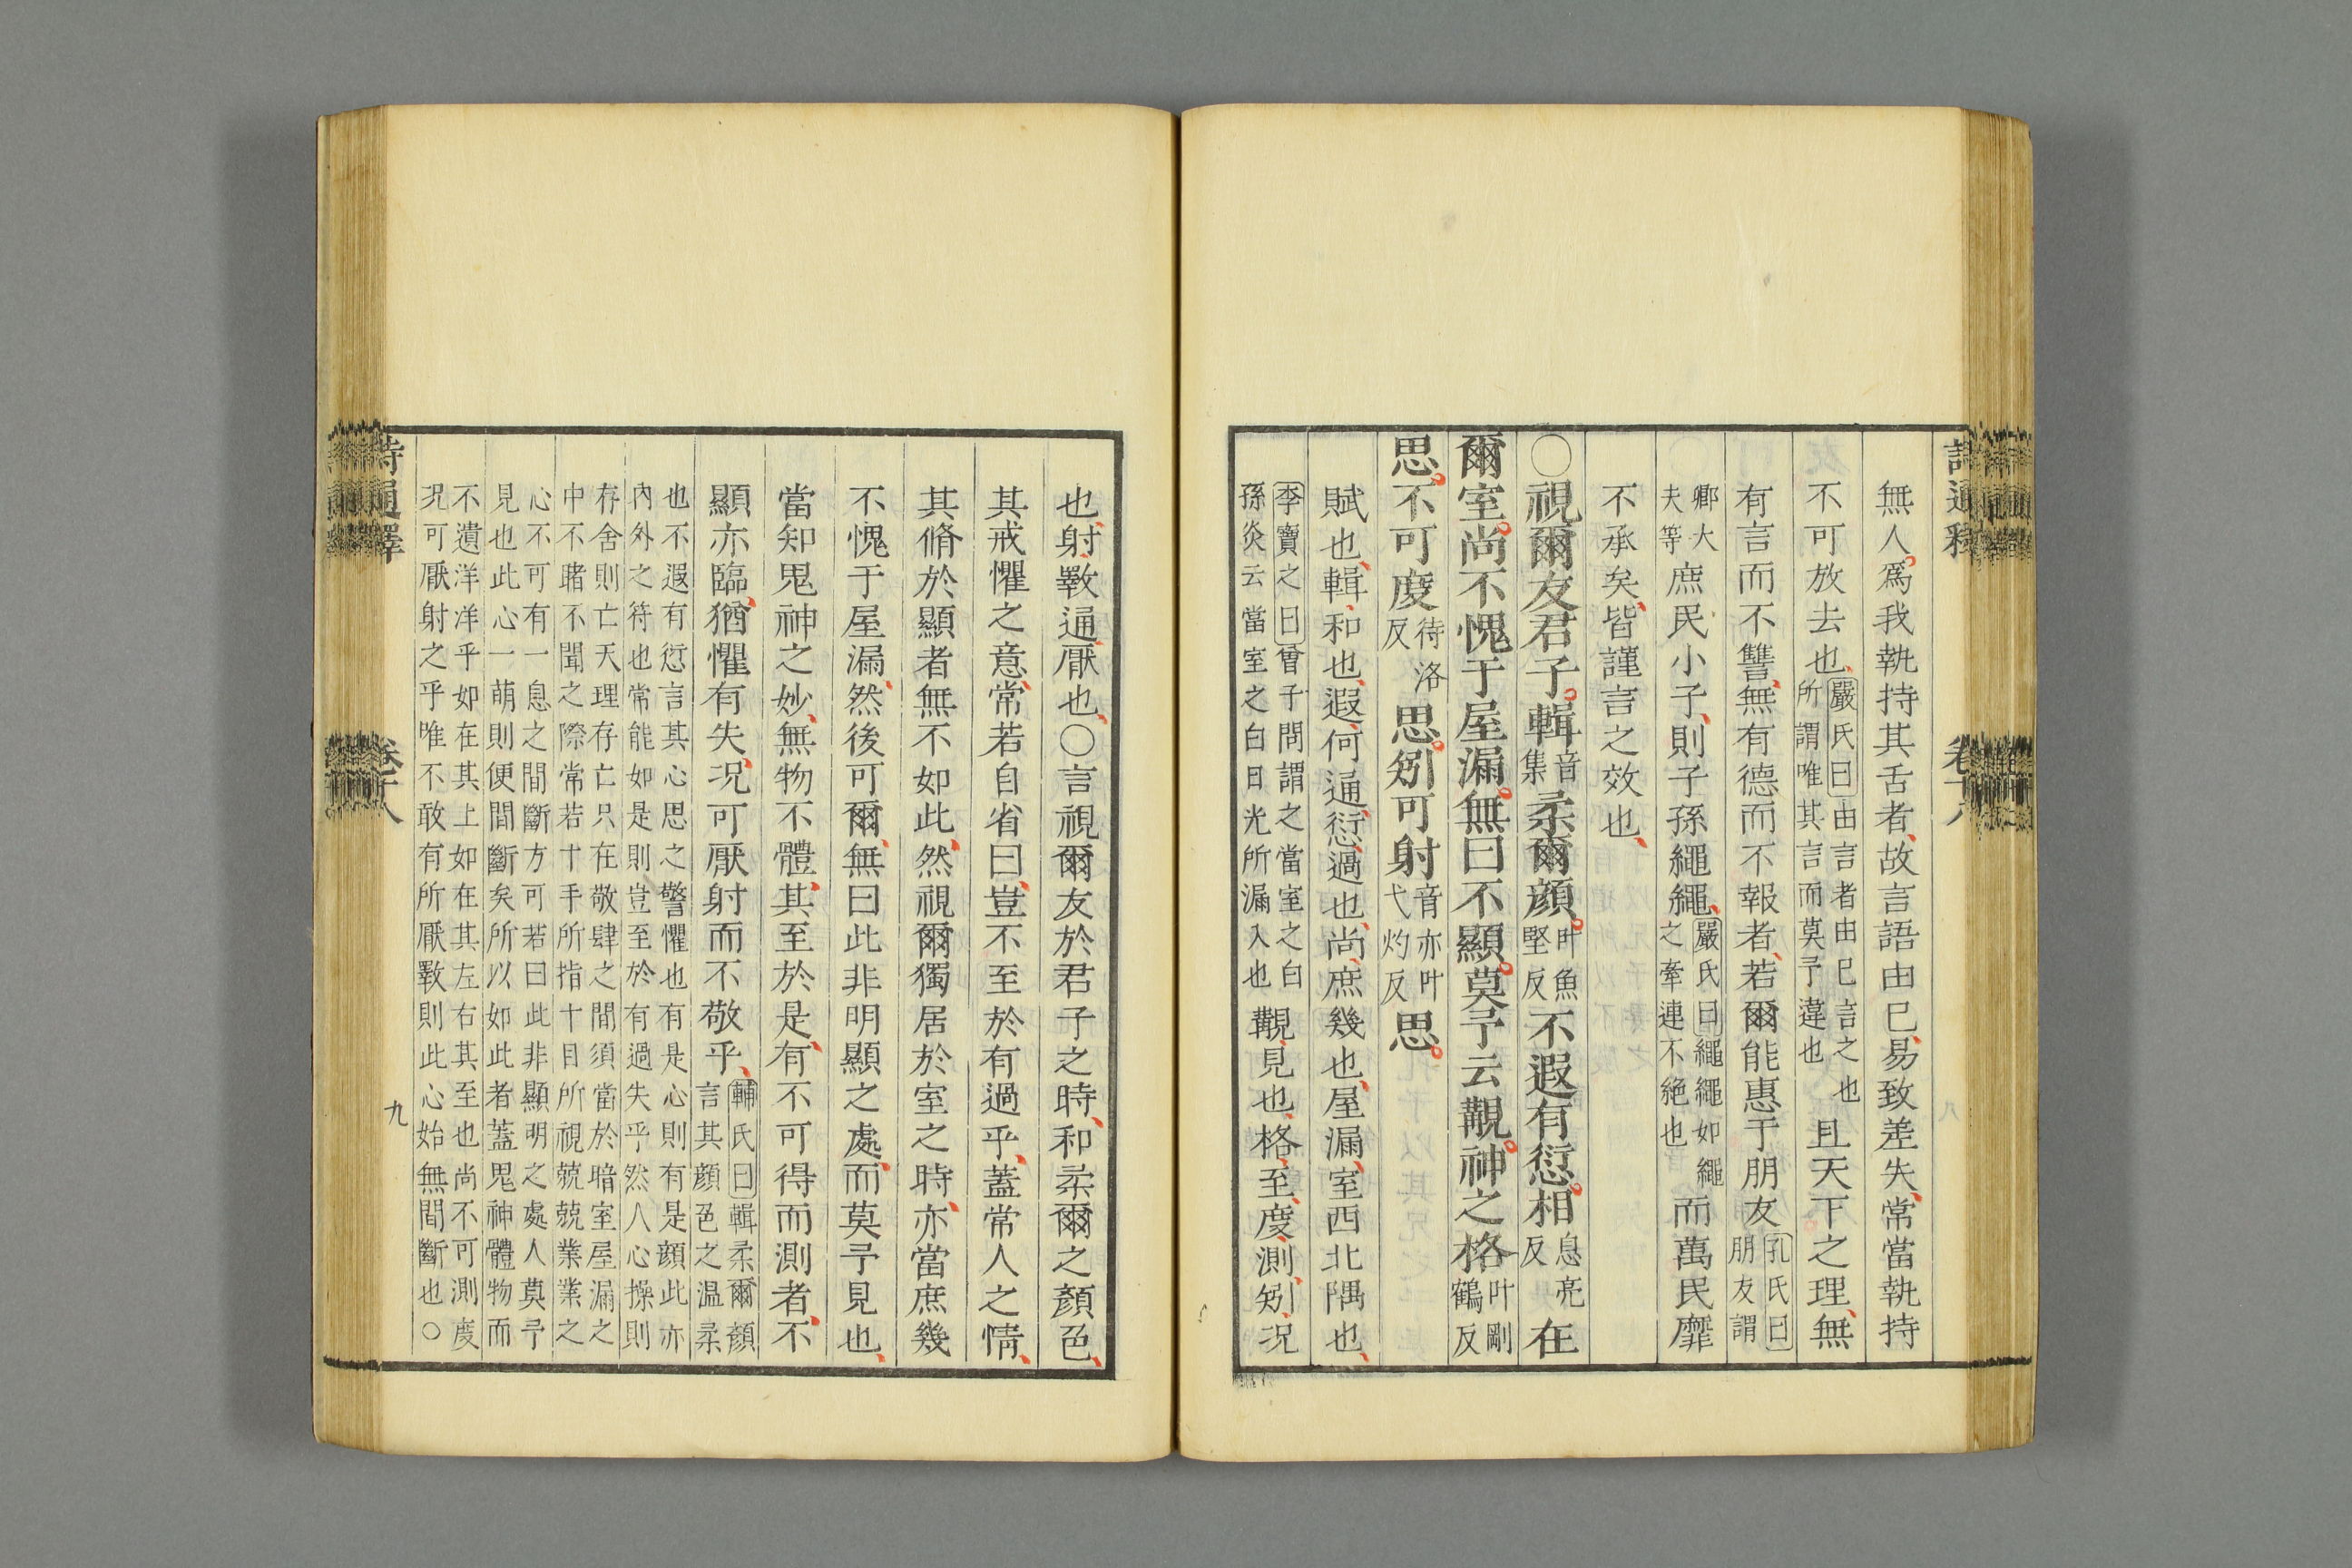 詩通釋
卷十八
八
無人爲我執持其舌者故言語由已易致差失常當執持
不可放去也嚴氏曰由言者由已言之也
所謂唯其言而莫予違也且天下之理無
有言而不讐無有德而不報者若爾能惠于朋友孔氏曰
朋友謂
卿大
夫等庶民小子則子孫繩繩嚴氏曰繩繩如繩
之牽連不絶也而萬民靡
不承矣皆謹言之效也
○視爾友君子輯音
集柔爾顔叶魚
堅反不遐有愆相息亮
反在
爾室尚不愧于屋漏無曰不顯莫予云覯神之格叶剛
鶴反
思不可度待洛
反思矧可射音亦叶
弋灼反思
賦也輯和也遐何通愆過也尚庶幾也屋漏室西北隅也
李寶之曰曾子問謂之當室之白
孫炎云當室之白日光所漏入也覯見也格至度測矧况
也射斁通厭也○言視爾友於君子之時和柔爾之顏色
其戒懼之意常若自省曰豈不至於有過乎蓋常人之情
其脩於顯者無不如此然視爾獨居於室之時亦當庶幾
不愧于屋漏然後可爾無曰此非明顯之處而莫予見也
當知鬼神之妙無物不體其至於是有不可得而測者不
顯亦臨猶懼有失况可厭射而不敬乎輔氏曰輯柔爾顏
言其顔色之温柔
也不遐有愆言其心思之警懼也有是心則有是顔此亦
內外之符也常能如是則豈至於有過失乎然人心操則
存舍則亡天理存亡只在敬肆之間須當於暗室屋漏之
中不睹不聞之際常若十手所指十目所視兢兢業業之
心不可有一息之間斷方可若曰此非顯明之處人莫予
見也此心一萌則便間斷矣所以如此者蓋鬼神體物而
不遺洋洋乎如在其上如在其左右其至也尚不可測度
况可厭射之乎唯不敢有所厭斁則此心始無間斷也○
詩通釋
卷十八
九